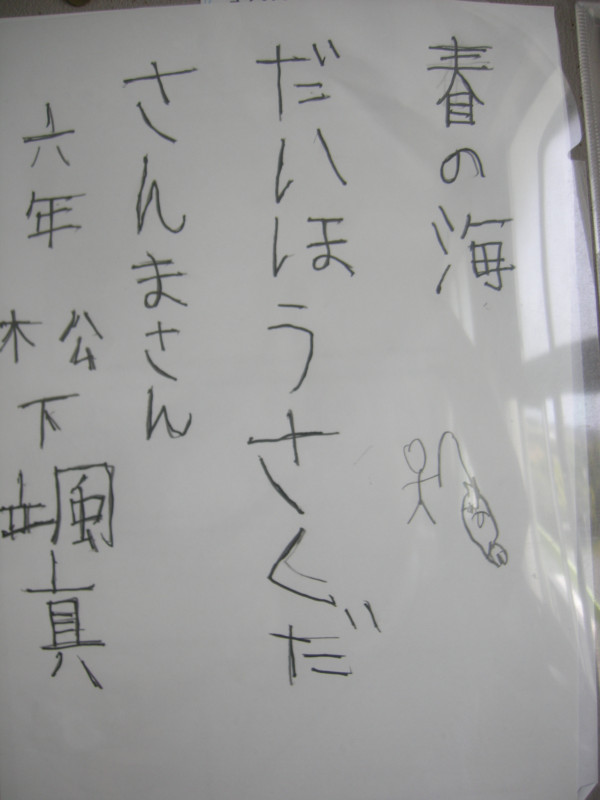 春の海
だいほうさくだ
さんまさん
六年 松下颯真